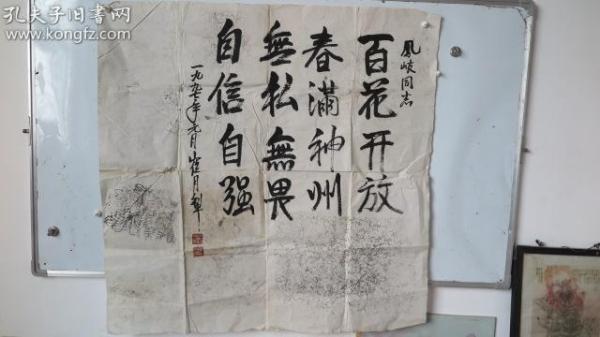 孔夫子旧书网
www.kongfz.com
鳳岐同志
百花开放
春滿神州
無私無畏
自信自强
一九九七年元月 崔月犁